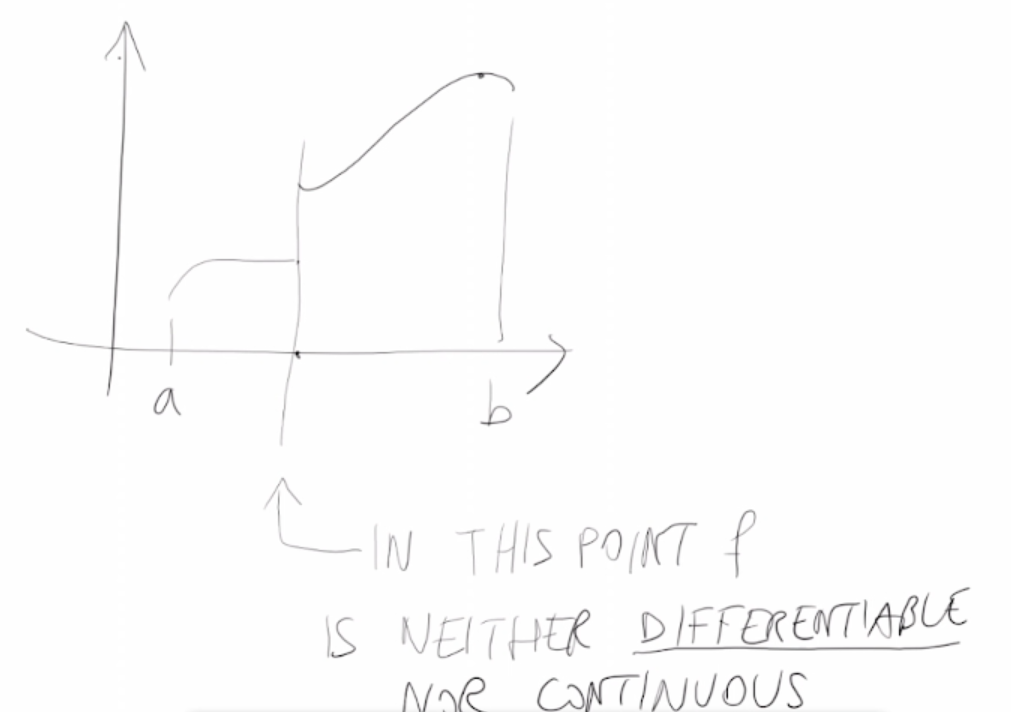 a
b
IN THIS POINT f
IS NEITHER DIFFERENTIABLE
NOR CONTINUOUS